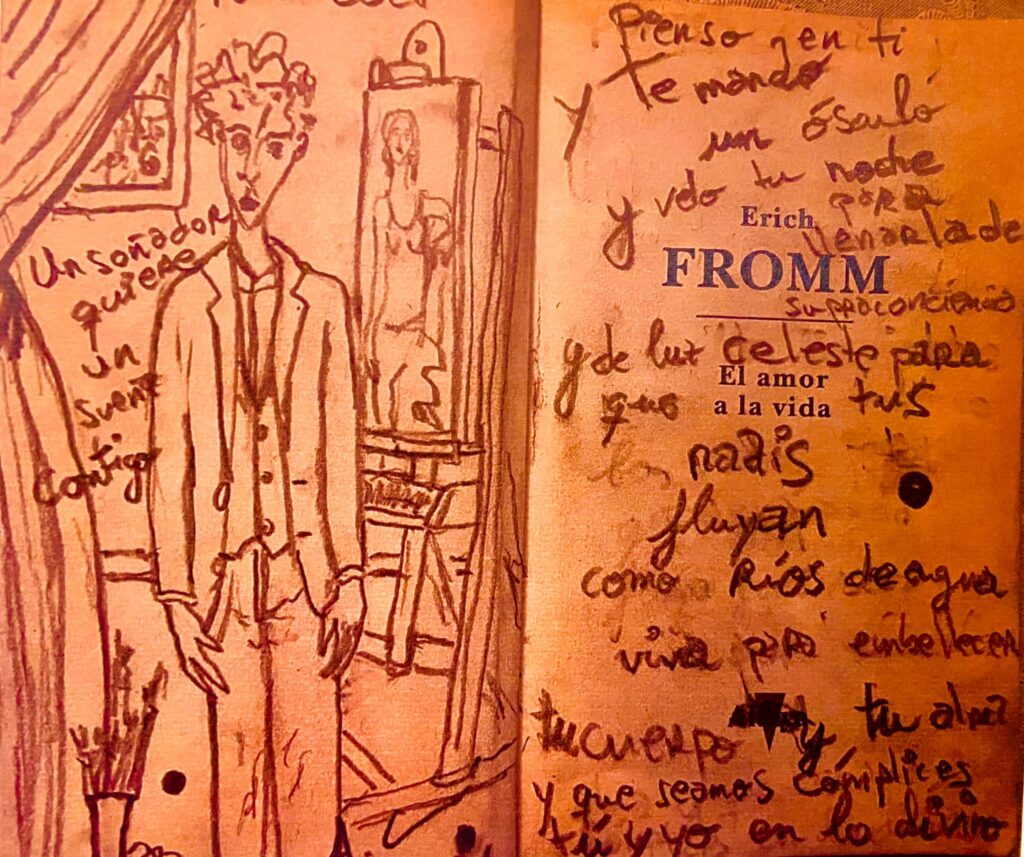 Un soñador
quiere
un
sueño
contigo
Pienso en ti
y Te mando
un ósculó
y velo tu noche
para
llenarla de
supraconciencia
y de luz celeste para
que tus
nadis
fluyan
como Ríos de agua
viva para embellecer
tu cuerpo y tu alma
y que seamos cómplices
tú y yo en lo divino
Erich
FROMM
El amor
a la vida